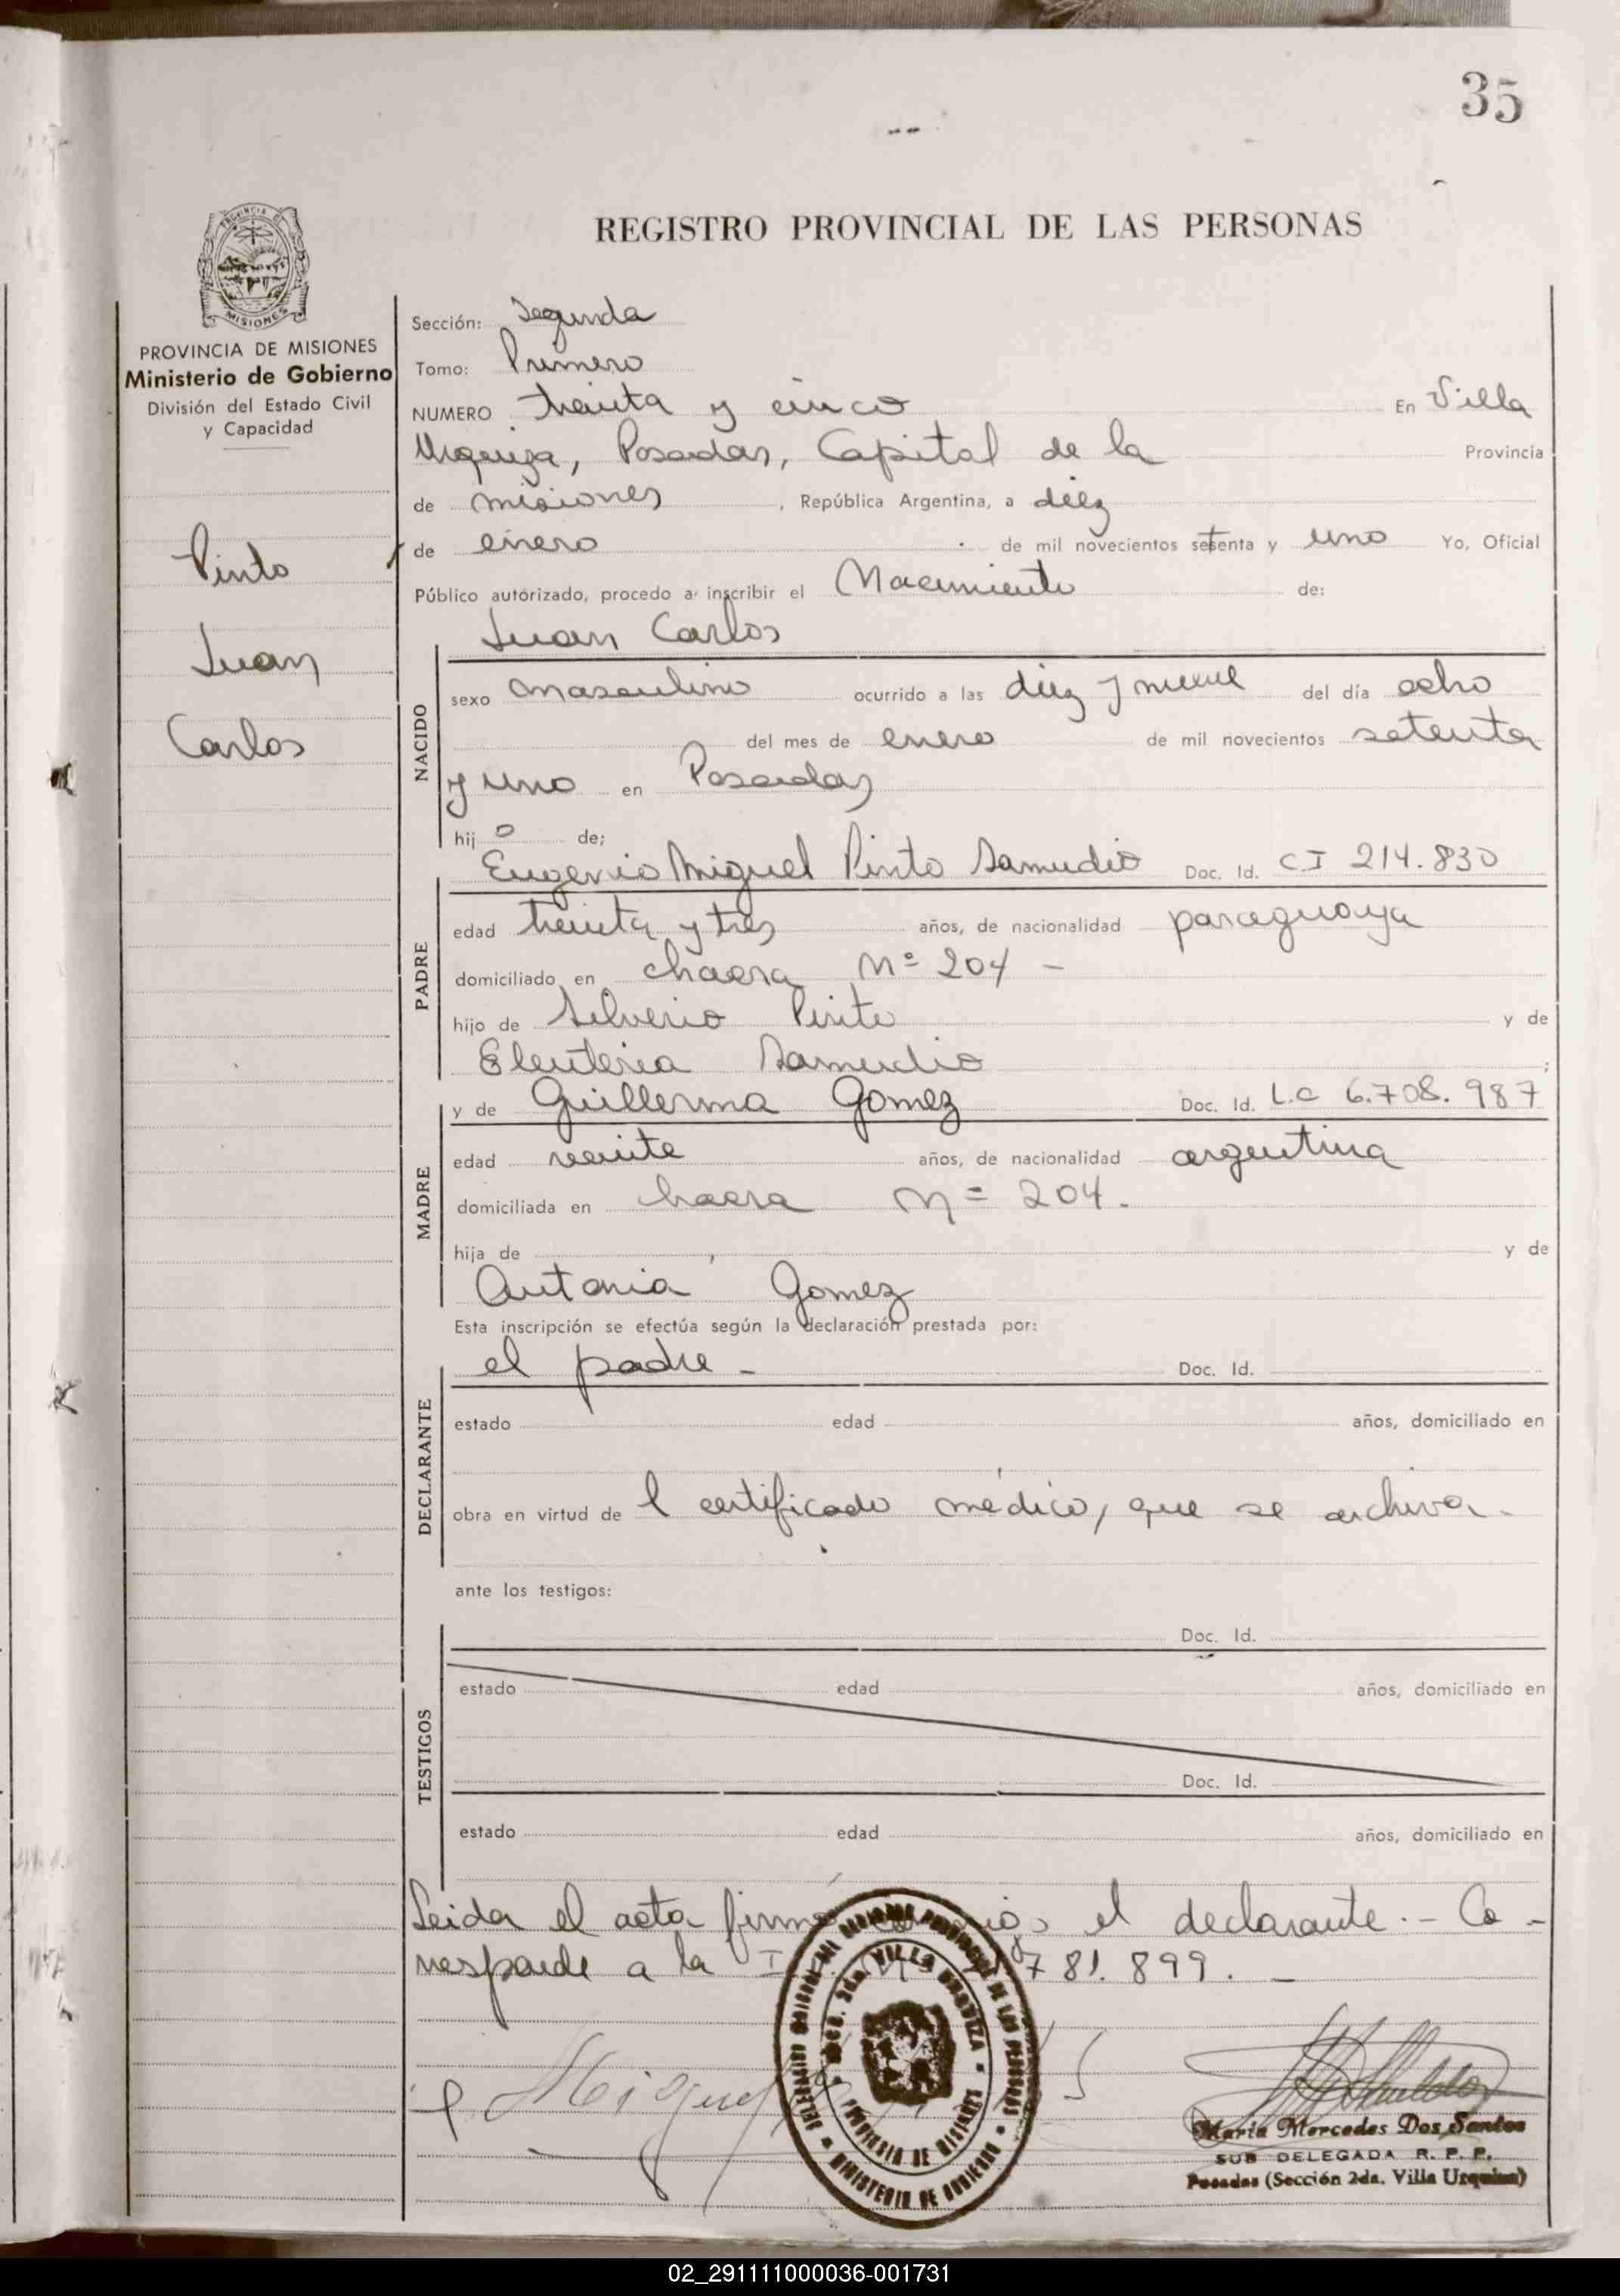 35
REGISTRO PROVINCIAL DE LAS PERSONAS
PROVINCIA DE MISIONES
Ministerio de Gobierno
División del Estado Civil
y Capacidad
Pinto
Juan
Carlos
Sección: Segunda
Tomo: Primero
NUMERO treinta y cinco En Villa
Urquiza, Posadas, Capital de la Provincia
de misiones, República Argentina, a diez
de enero de mil novecientos setenta y uno Yo, Oficial
Público autorizado, procedo a inscribir el Nacimiento de:
Juan Carlos
NACIDO
sexo masculino ocurrido a las diez y nueve del día ocho
del mes de enero de mil novecientos setenta
y uno en Posadas
hijo de;
Eugenio Miguel Pinto Samudio Doc. Id. C.I 214.830
PADRE
edad treinta y tres años, de nacionalidad paraguaya
domiciliado en chacra Nº 204 -
hijo de Silverio Pinto y de
Eleuteria Samudio;
MADRE
y de Guillerma Gomez Doc. Id. L.C 6.708.987
edad veinte años, de nacionalidad argentina
domiciliada en chacra Nº 204.
hija de y de
Antonia Gomez
Esta inscripción se efectúa según la declaración prestada por:
DECLARANTE
el padre - Doc. Id.
estado edad años, domiciliado en
obra en virtud de l certificado médico, que se archiva.
ante los testigos:
TESTIGOS
Doc. Id.
estado edad años, domiciliado en
Doc. Id.
estado edad años, domiciliado en
Leida el acta firma el declarante.- Co-
rresponde a la 781.899. -
Miguel
VILLA URQUIZA
PROVINCIA DE MISIONES
MINISTERIO DE GOBIERNO
Maria Mercedes Dos Santos
SUB DELEGADA R. P. P.
Posadas (Sección 2da. Villa Urquiza)
02_291111000036-001731